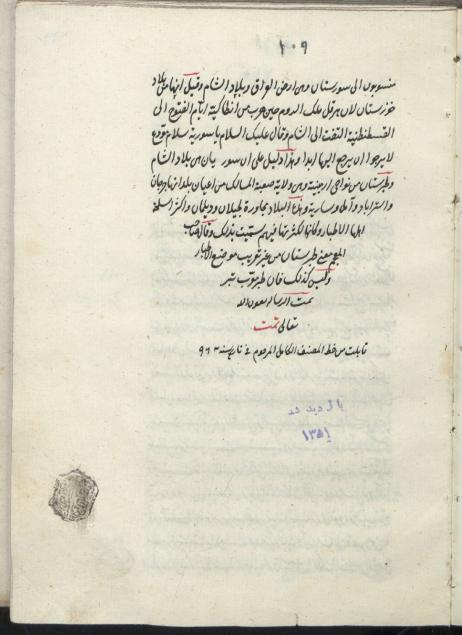 ١٠٩
منسوبون الى سورستان وهى ارض العراق وبلاد الشام وقيل انها من بلاد
خوزستان لان هرقل ملك الروم حين هرب من انطاكية ايام الفتوح الى
القسطنطنية التفت الى الشام وقال عليك السلام يا سورية سلام مودع
لا يرجوا ان يرجع اليها ابدا وهذا دليل على ان سوريان هى بلاد الشام
وطبرستان من نواحى ارمينية وهى ولاية صعبة المسالك من اعيان بلدانها جرجان
واستراباد وآمل وسارية وهذه البلاد مجاورة لجيلان وديلمان واكثر اسلحة
اهلها الاطبار ولكانها لكثرتها فيهم سميت بذلك وقال صاحب
المعجم معنى طبرستان من غير تعريب موضع الاطبار
وليس كذلك فان طبر معرب تبر
تمت الرسالة بعون الله
تعالى تمت
قابلت من خط المصنف الكامل المرقوم فى تاريخ سنه ٩٦٣
بازديد شد
١٣٥١